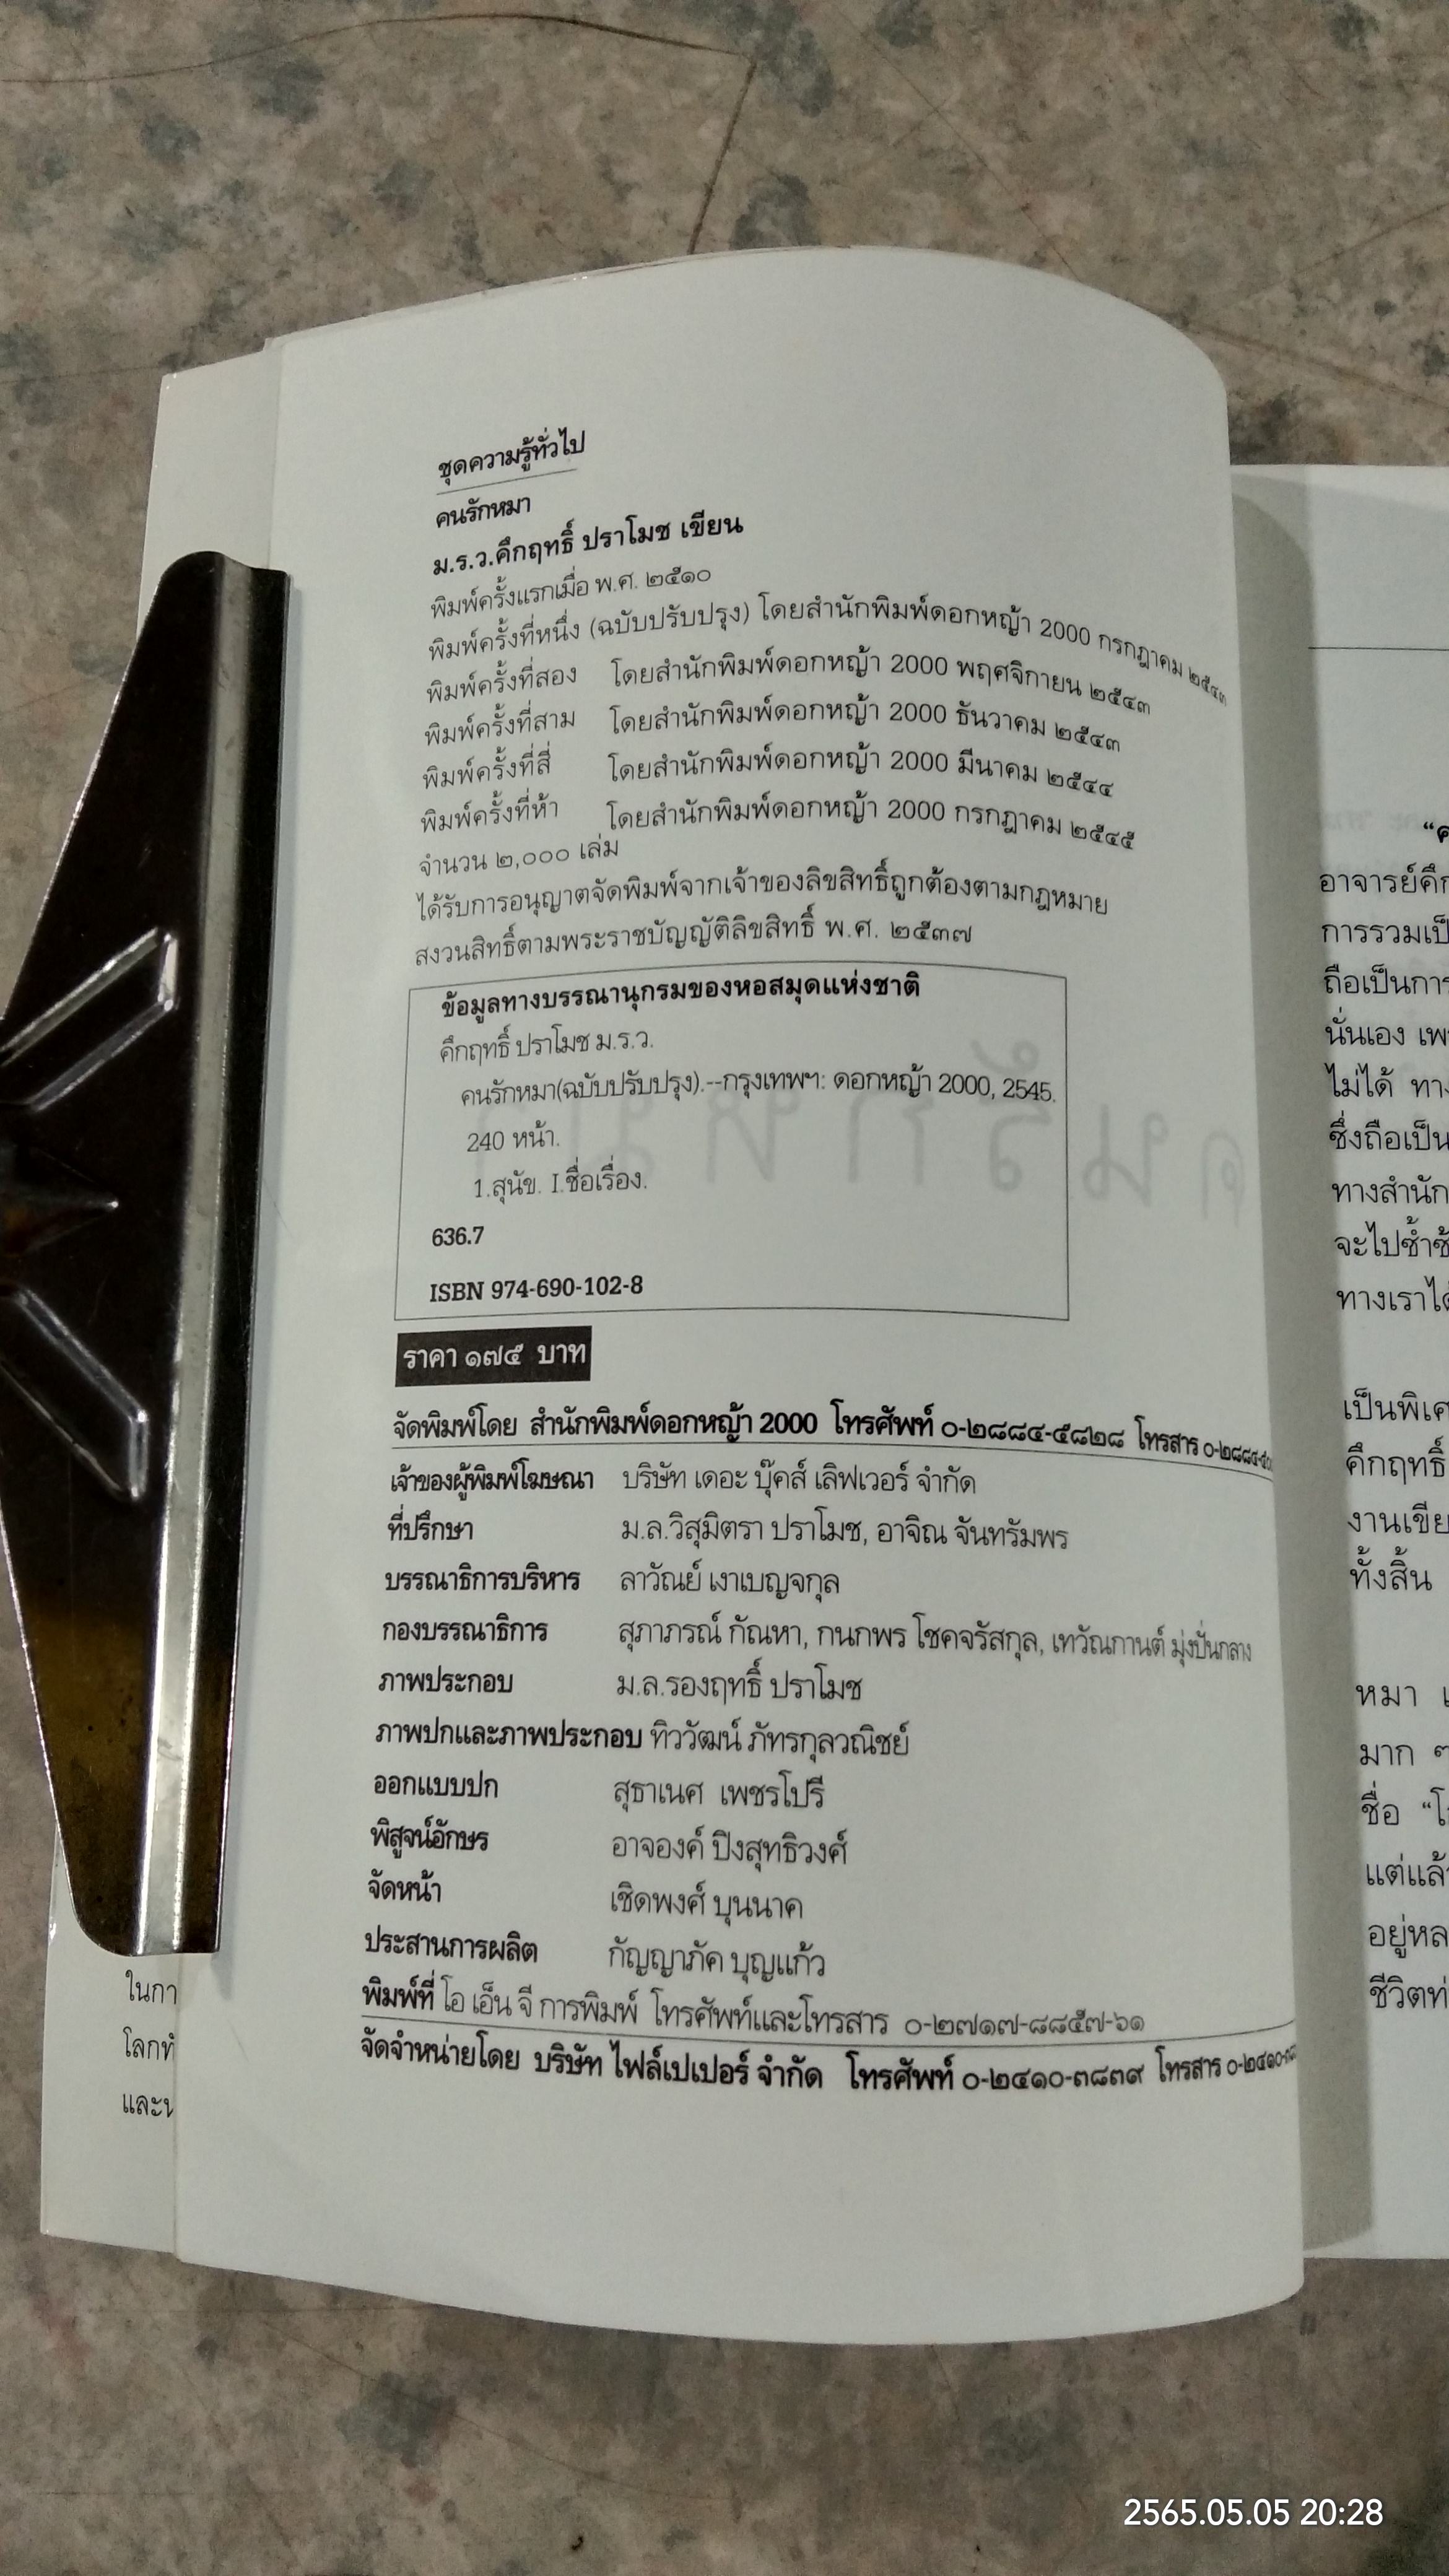 ชุดความรู้ทั่วไป
คนรักหมา
ม.ร.ว.คึกฤทธิ์ ปราโมช เขียน
พิมพ์ครั้งแรกเมื่อ พ.ศ. ๒๕๑๐
พิมพ์ครั้งที่หนึ่ง (ฉบับปรับปรุง) โดยสำนักพิมพ์ดอกหญ้า 2000 กรกฎาคม ๒๕๔๓
พิมพ์ครั้งที่สอง โดยสำนักพิมพ์ดอกหญ้า 2000 พฤศจิกายน ๒๕๔๓
พิมพ์ครั้งที่สาม โดยสำนักพิมพ์ดอกหญ้า 2000 ธันวาคม ๒๕๔๓
พิมพ์ครั้งที่สี่ โดยสำนักพิมพ์ดอกหญ้า 2000 มีนาคม ๒๕๔๔
พิมพ์ครั้งที่ห้า โดยสำนักพิมพ์ดอกหญ้า 2000 กรกฎาคม ๒๕๔๕
จำนวน ๒,๐๐๐ เล่ม
ได้รับการอนุญาตจัดพิมพ์จากเจ้าของลิขสิทธิ์ถูกต้องตามกฎหมาย
สงวนสิทธิ์ตามพระราชบัญญัติลิขสิทธิ์ พ.ศ. ๒๕๓๗
ข้อมูลทางบรรณานุกรมของหอสมุดแห่งชาติ
คึกฤทธิ์ ปราโมช ม.ร.ว.
คนรักหมา(ฉบับปรับปรุง).--กรุงเทพฯ: ดอกหญ้า 2000, 2545.
240 หน้า.
1.สุนัข. I.ชื่อเรื่อง.
636.7
ISBN 974-690-102-8
ราคา ๑๗๕ บาท
จัดพิมพ์โดย สำนักพิมพ์ดอกหญ้า 2000 โทรศัพท์ ๐-๒๘๘๔-๕๘๒๘ โทรสาร
เจ้าของผู้พิมพ์โฆษณา บริษัท เดอะ บุ๊คส์ เลิฟเวอร์ จำกัด
ที่ปรึกษา ม.ล.วิสุมิตรา ปราโมช, อาจิณ จันทรัมพร
บรรณาธิการบริหาร ลาวัณย์ เงาเบญจกุล
กองบรรณาธิการ สุภาภรณ์ กัณหา, กนกพร โชคจรัสกุล, เทวัณกานต์ มุ่งปั่นกลาง
ภาพประกอบ ม.ล.รองฤทธิ์ ปราโมช
ภาพปกและภาพประกอบ ทิววัฒน์ ภัทรกุลวณิชย์
ออกแบบปก สุธาเนศ เพชรโปรี
พิสูจน์อักษร อาจองค์ ปิงสุทธิวงศ์
จัดหน้า เชิดพงศ์ บุนนาค
ประสานการผลิต กัญญาภัค บุญแก้ว
พิมพ์ที่ โอ เอ็น จี การพิมพ์ โทรศัพท์และโทรสาร ๐-๒๗๑๗-๘๘๕๗-๖๑
จัดจำหน่ายโดย บริษัท ไฟล์เปเปอร์ จำกัด โทรศัพท์ ๐-๒๔๑๐-๓๘๓๙ โทรสาร
อาจารย์คึก
การรวมเป็
ถือเป็นการ
นั่นเอง เพ
ไม่ได้ ทาง
ซึ่งถือเป็น
ทางสำนัก
จะไปซ้ำซ้
ทางเราได้
เป็นพิเศ
คึกฤทธิ์
งานเขีย
ทั้งสิ้น
หมา
มาก ๆ
ชื่อ
แต่แล้
อยู่หล
ชีวิตท
ในกา
โลกทั
และ
2565.05.05 20:28